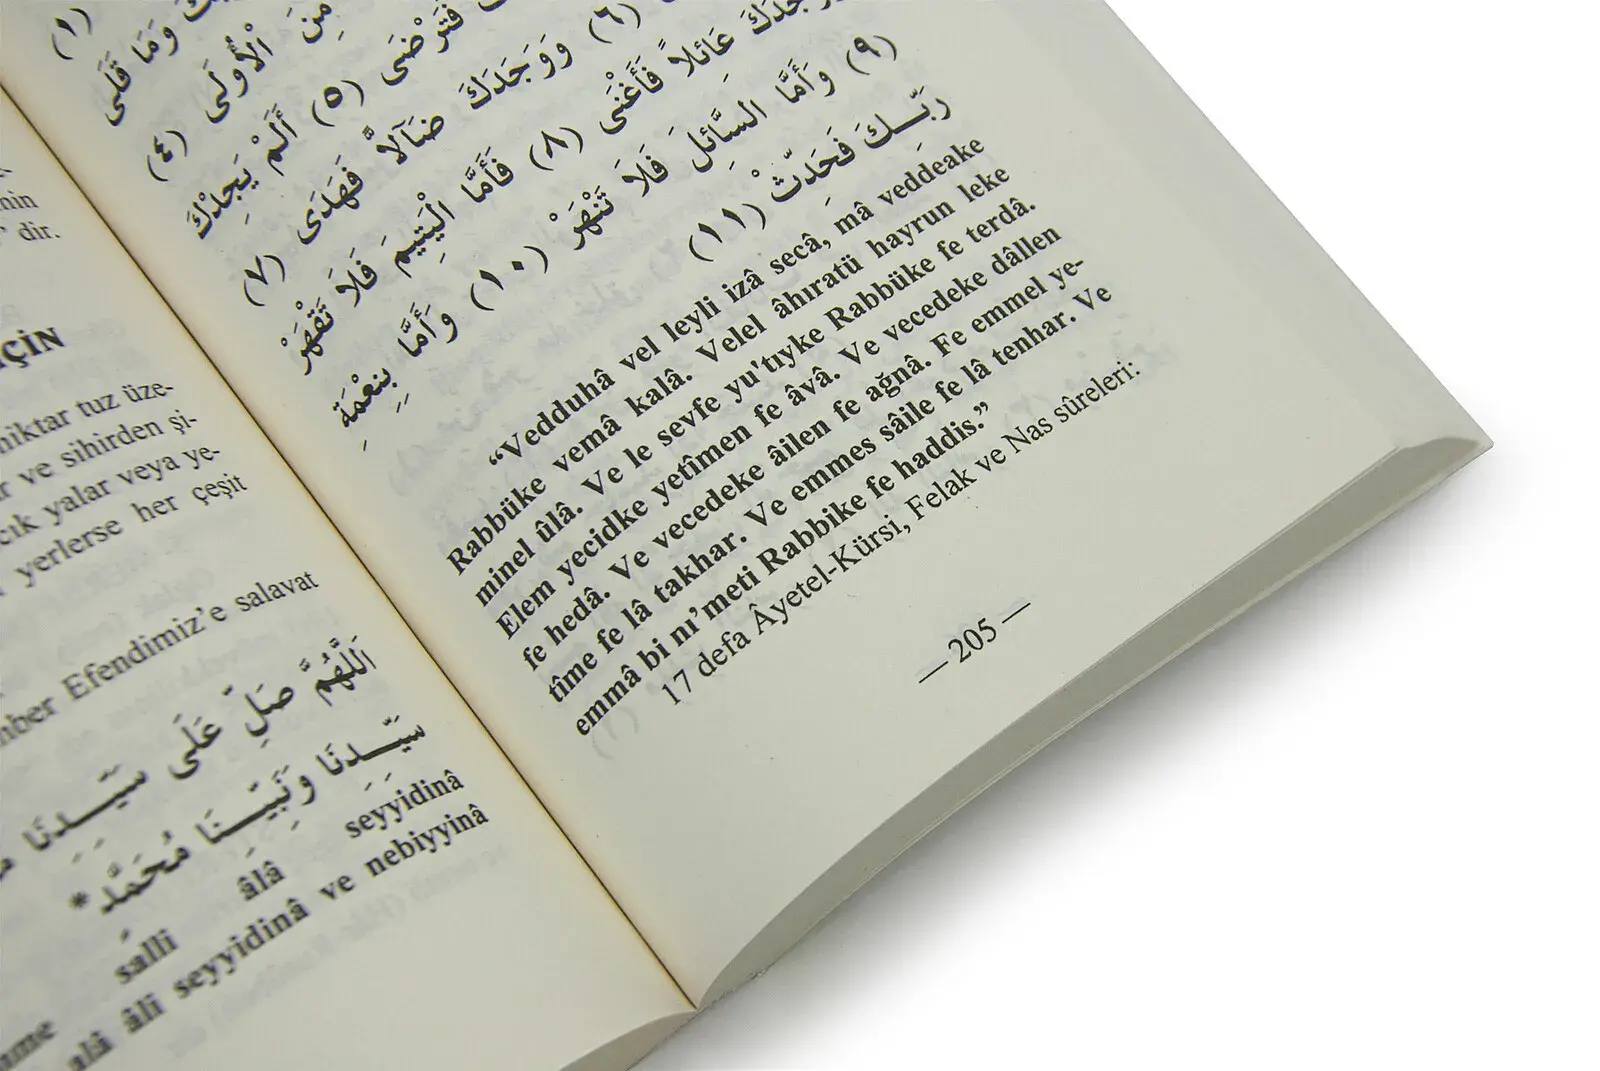 nin
dir.
ÇİN
miktar tuz üze-
ve sihirden şi-
cık yalar veya ye-
yerlerse her çeşit
Efendimiz'e salavat
اَللّٰهُمَّ صَلِّ عَلَى سَيِّدِنَا
سَيِّدِنَا وَنَبِيِّنَا مُحَمَّدٍ *
salli âlâ seyyidinâ
alâ âli seyyidinâ ve nebiyyinâ
(١)
وَمَا قَلَى
مِنَ الْأُولَى (٤)
فَتَرْضَى (٥) أَلَمْ يَجِدْكَ
(٦) وَوَجَدَكَ ضَآلاًّ فَهَدَى (٧)
عَائِلاً فَأَغْنَى (٨) فَأَمَّا الْيَتِيمَ فَلاَ تَقْهَرْ
(٩) وَأَمَّا السَّائِلَ فَلاَ تَنْهَرْ (١٠) وَأَمَّا بِنِعْمَةِ
رَبِّكَ فَحَدِّثْ (١١)
“Vedduhâ vel leyli izâ secâ, mâ veddeake
Rabbüke vemâ kalâ. Velel âhıratü hayrun leke
minel ûlâ. Ve le sevfe yu'tıyke Rabbüke fe terdâ.
Elem yecidke yetîmen fe âvâ. Ve vecedeke dâllen
fe hedâ. Ve vecedeke âilen fe ağnâ. Fe emmel ye-
tîme fe lâ takhar. Ve emmes sâile fe lâ tenhar. Ve
emmâ bi nı’meti Rabbike fe haddis.”
17 defa Âyetel-Kürsi, Felak ve Nas sûreleri:
— 205 —